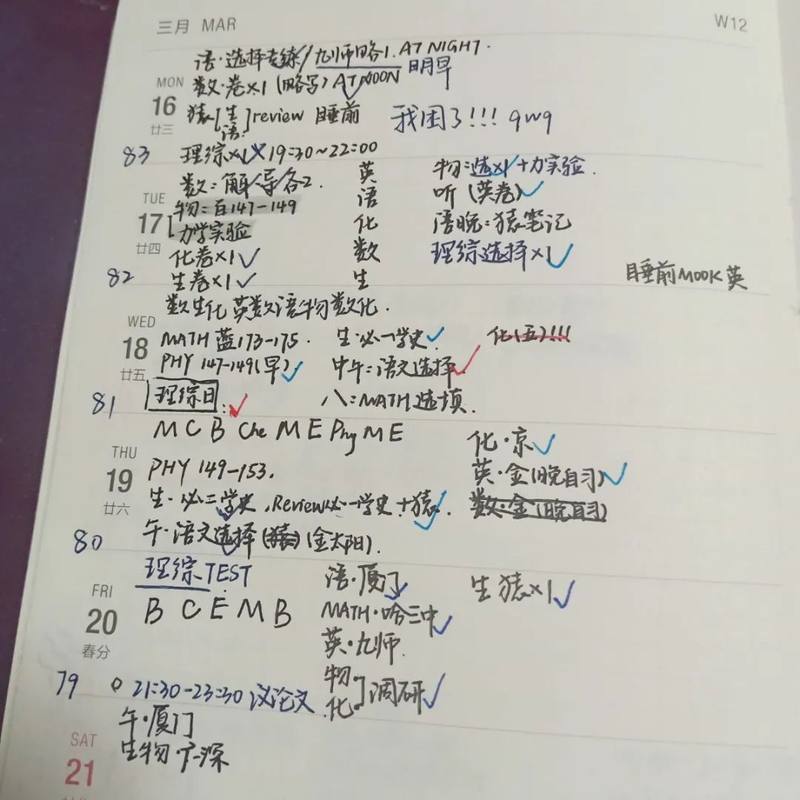 三月 MAR
W12
语·选择专练/九师略1. AT NIGHT.
数·卷×1 (略写) AT NOON 明早
MON
16
廿三
猿[生语]review 睡前
我困了!!! qwq
83
理综×1 19:30~22:00
数:解/导各2.
TUE
17
廿四
物:百147-149
力学实验
化卷×1✓
82
生卷×1✓
英
语
化
数
生
物:选×1+力实验.
听(英卷)✓
语晚:猿笔记
理综选择×1✓
睡前MOOK英
数生化英数语物数化.
WED
18
廿五
MATH 蓝173-175.
PHY 147-149(早)✓
81
理综日:✓
生·必一学史✓
中午:语文选择✓
八:MATH选填.
化(五)!!!
M C B Che M E Phy M E
THU
19
廿六
PHY 149-153.
生·必二学史,Review必一学史+猿✓
80
午·语文选择(猿)(金太阳).
化·京✓
英·金(晚自习)✓
数·金(晚自习)
FRI
20
春分
理综TEST
B C E M B
语·厦门✓
MATH·哈三中✓
英·九师.
物
化]调研✓
生猿×1✓
79
21:30-23:30 议论文
午·厦门
SAT
21
生物